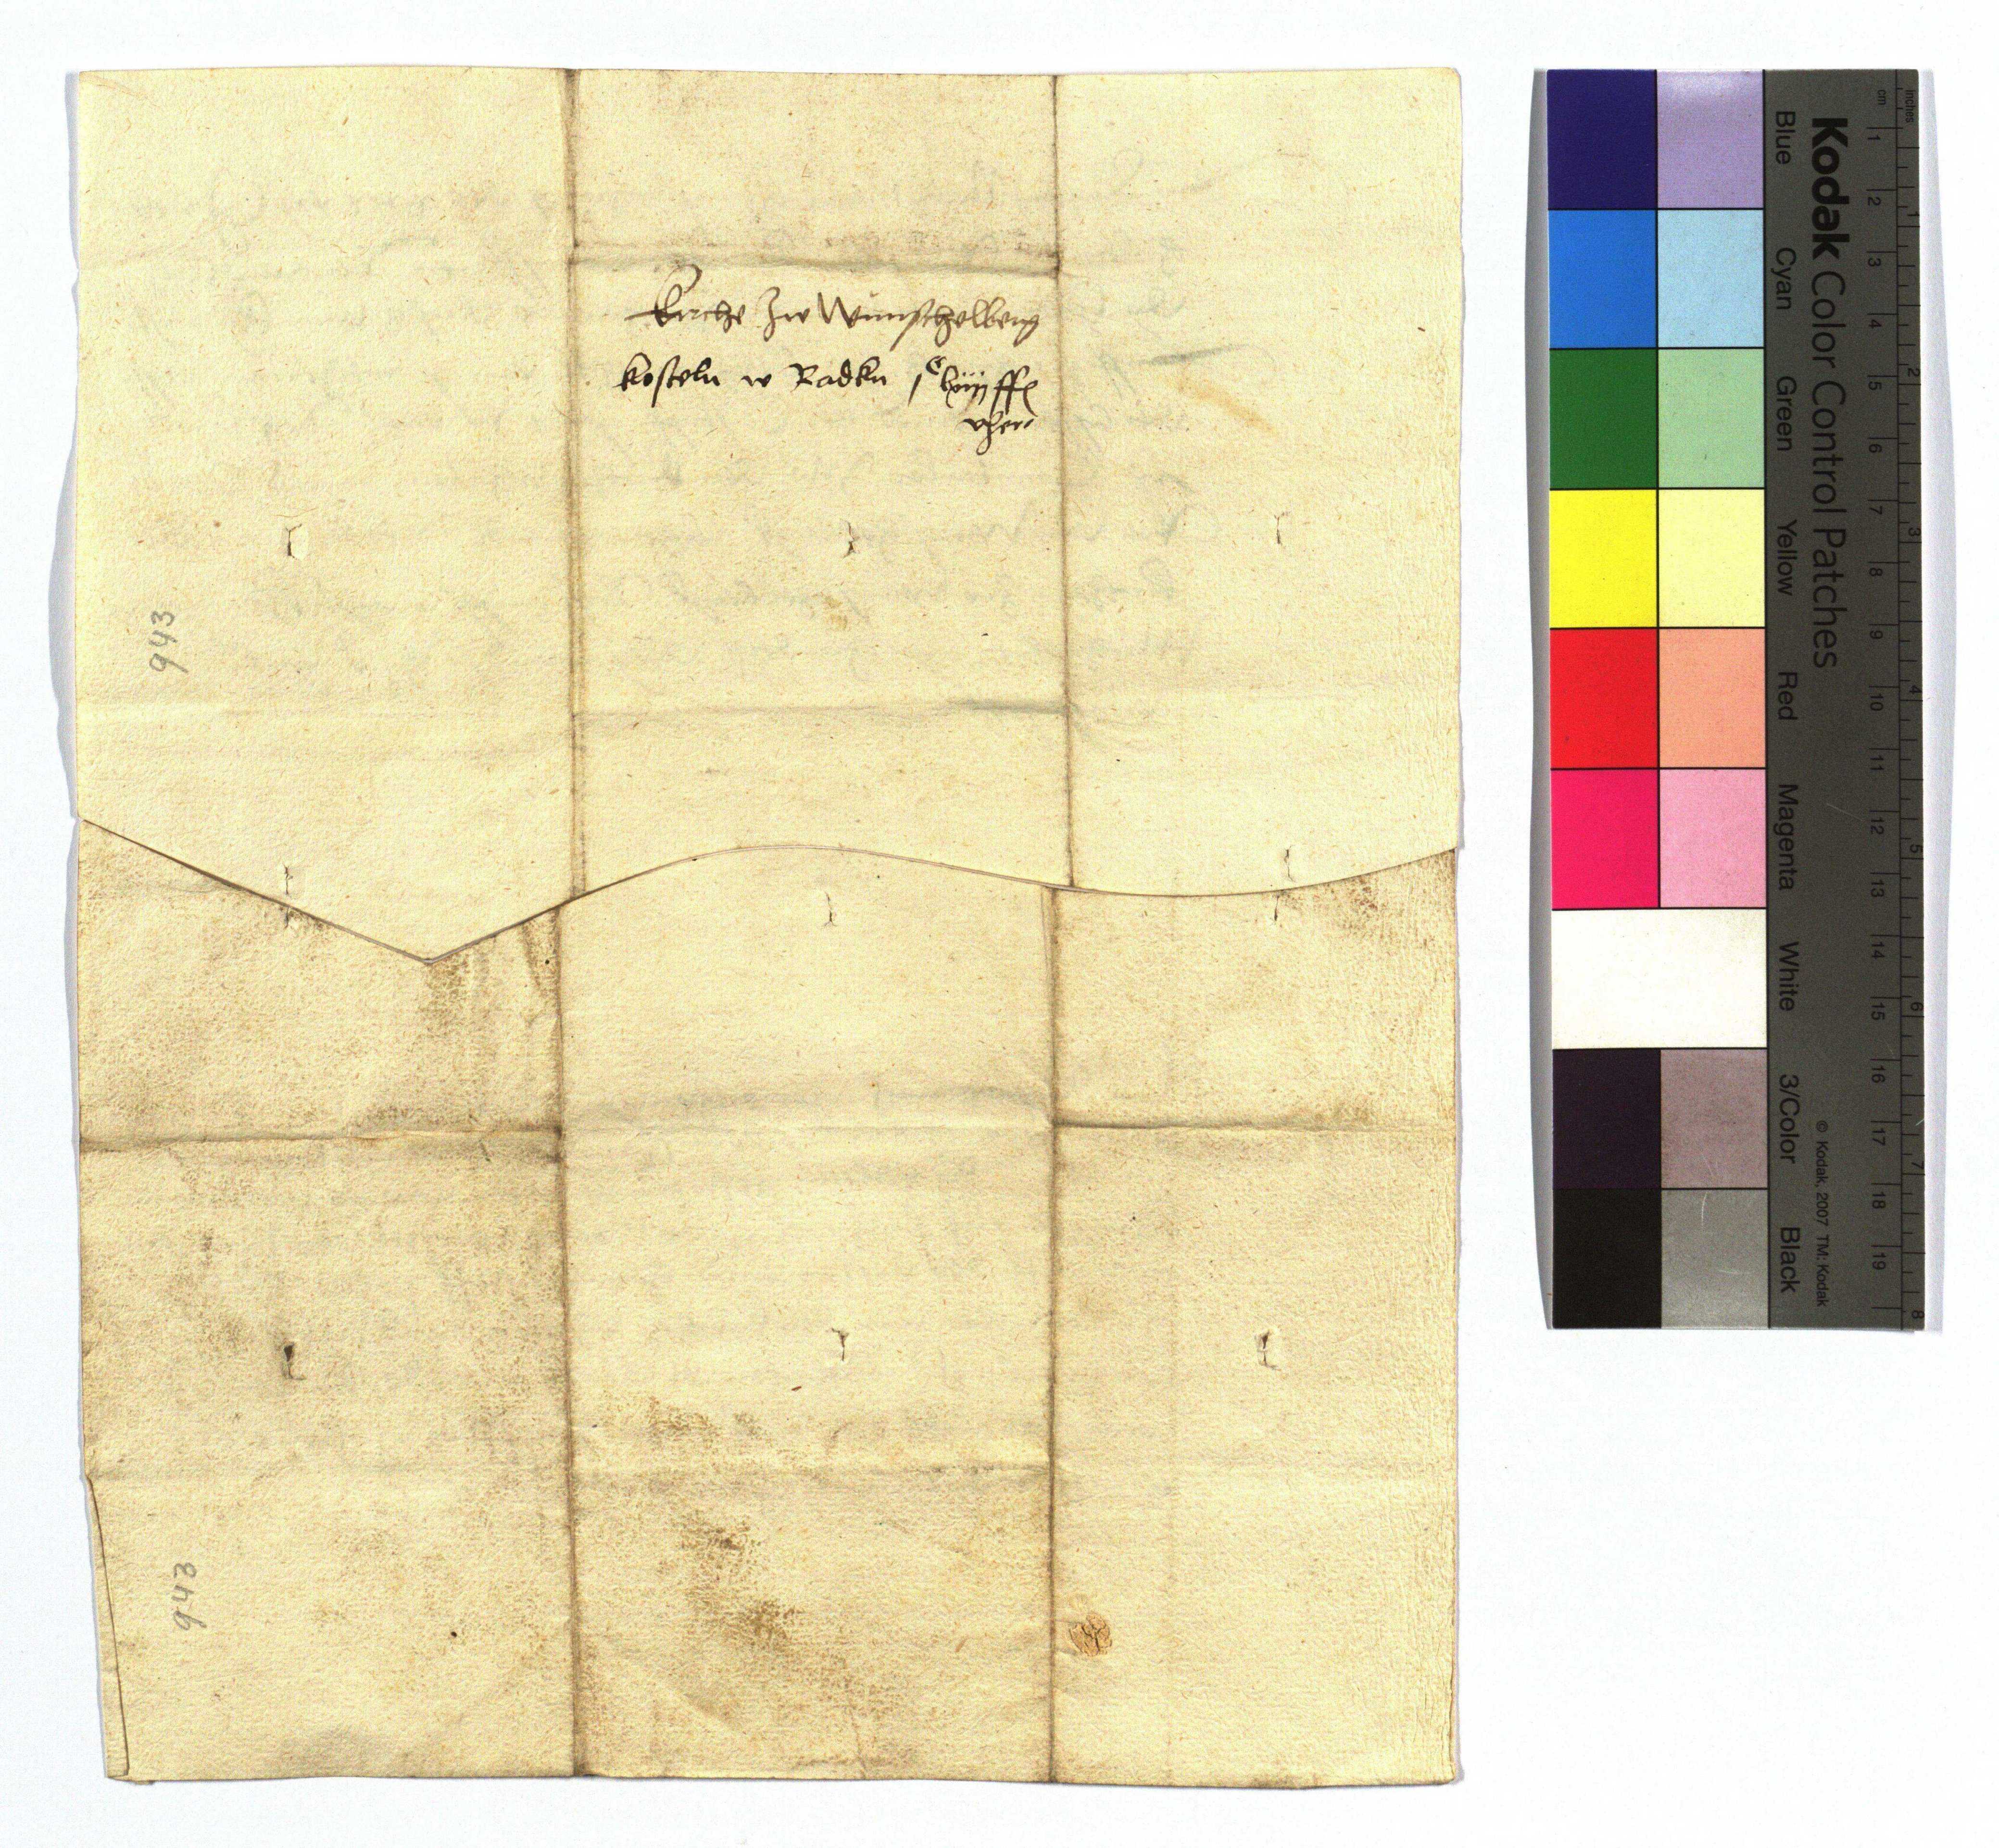 Kirche Zw Wunschelberg
kosteln w Radku
943
943
Kodak Color Control Patches
Blue Cyan Green Yellow Red Magenta White 3/Color Black
© Kodak, 2007 TM: Kodak
cm 1 2 3 4 5 6 7 8 9 10 11 12 13 14 15 16 17 18 19
inches 1 2 3 4 5 6 7 8